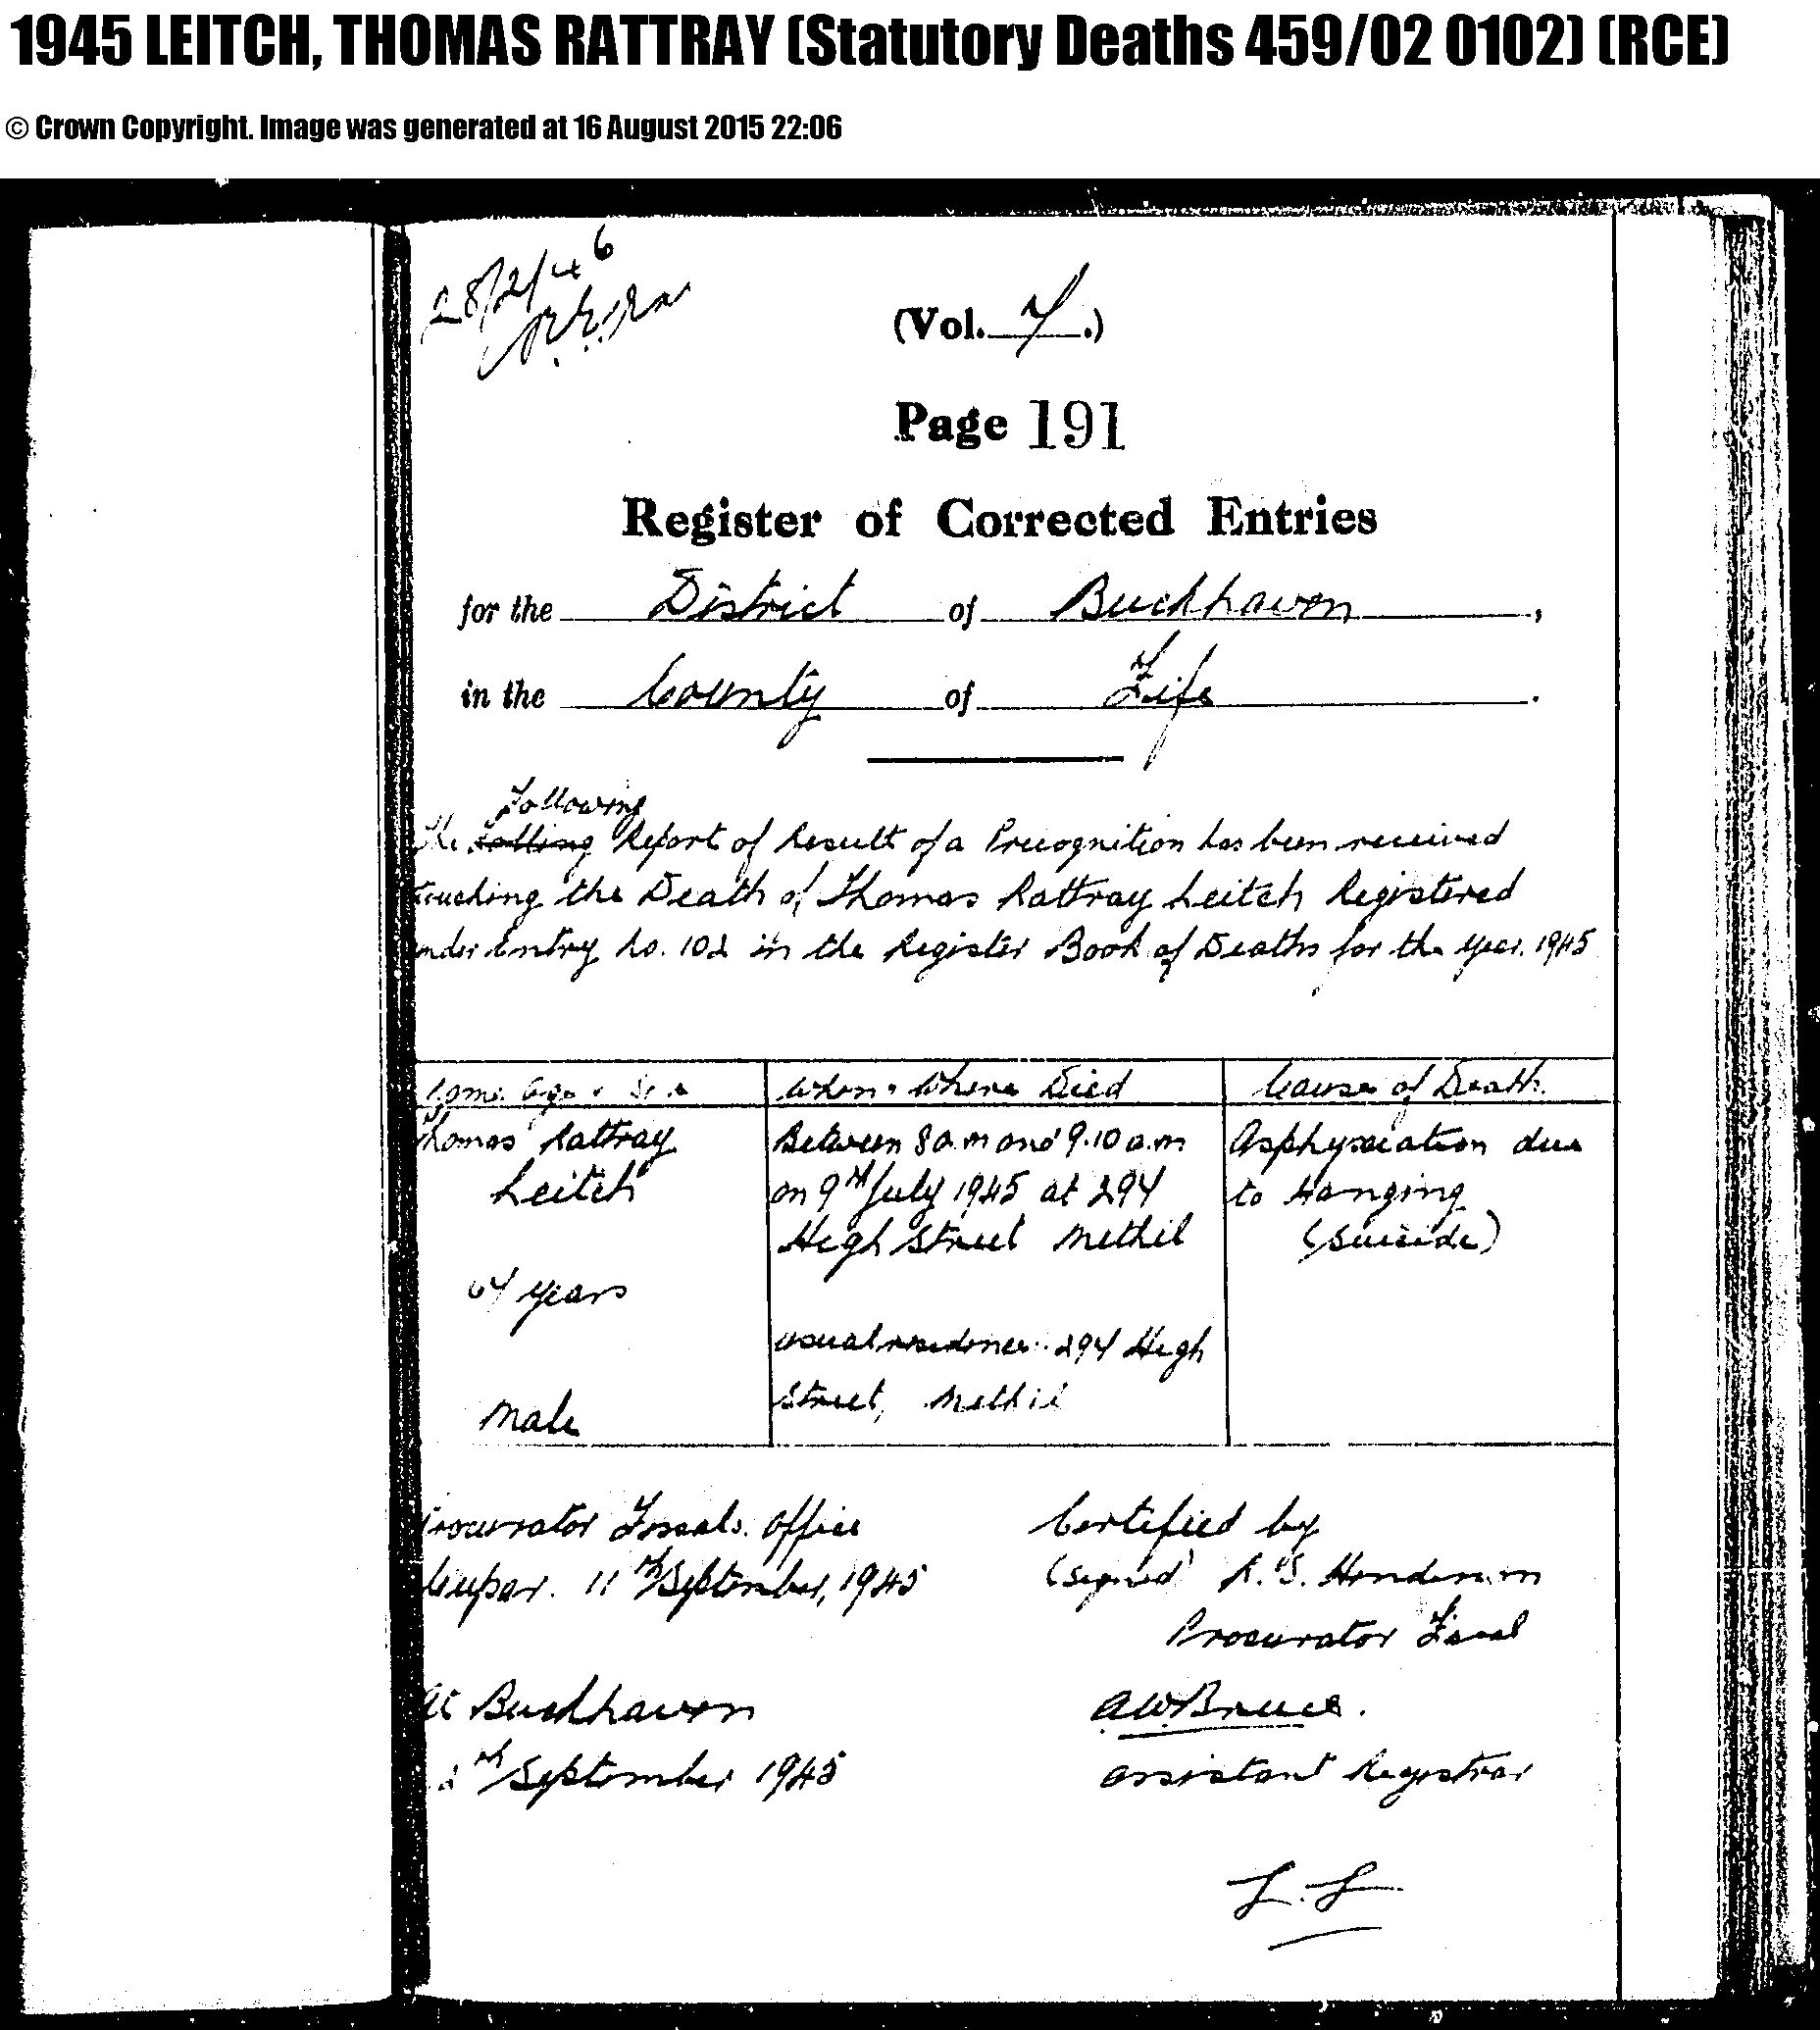 1945 LEITCH, THOMAS RATTRAY (Statutory Deaths 459/02 0102) (RCE)
© Crown Copyright. Image was generated at 16 August 2015 22:06
28/2/46
(Vol. 7.)
Page 191
Register of Corrected Entries
for the District of Buckhaven,
in the County of Fife.
Following
The Report of Result of a Precognition has been received
touching the Death of Thomas Rattray Leitch Registered
under Entry No. 102 in the Register Book of Deaths for the year 1945
Name Age & Sex When & Where Died Cause of Death.
Thomas Rattray Between 8 a.m and 9.10 a.m Asphyxiation due
Leitch on 9th July 1945 at 294 to Hanging
High Street Methil (Suicide)
years
usual residence 294 High
Street, Methil
Male
Procurator Fiscals Office Certified by
Cupar. 11th September, 1945 (signed) R. S. Henderson
Procurator Fiscal
At Buckhaven A W Bruce.
September 1945 Assistant Registrar